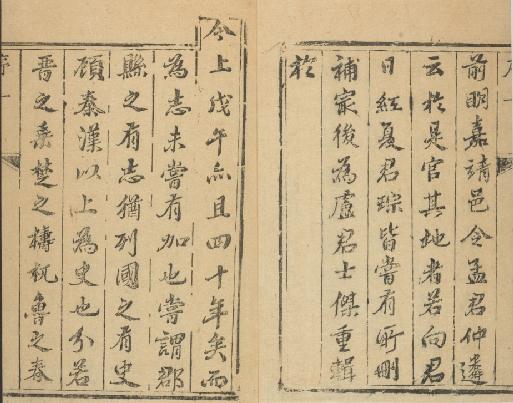 前明嘉靖邑令孟君仲遴
云於是官其地者若向君
日紅夏君琮皆嘗有所刪
補寂後為盧君士傑重輯
於
今上戊午亦且四十年矣而
為志未嘗有加也嘗謂郡
縣之有志猶列國之有史
顧秦漢以上為史也分若
晋之乗楚之檮杌魯之春
序一